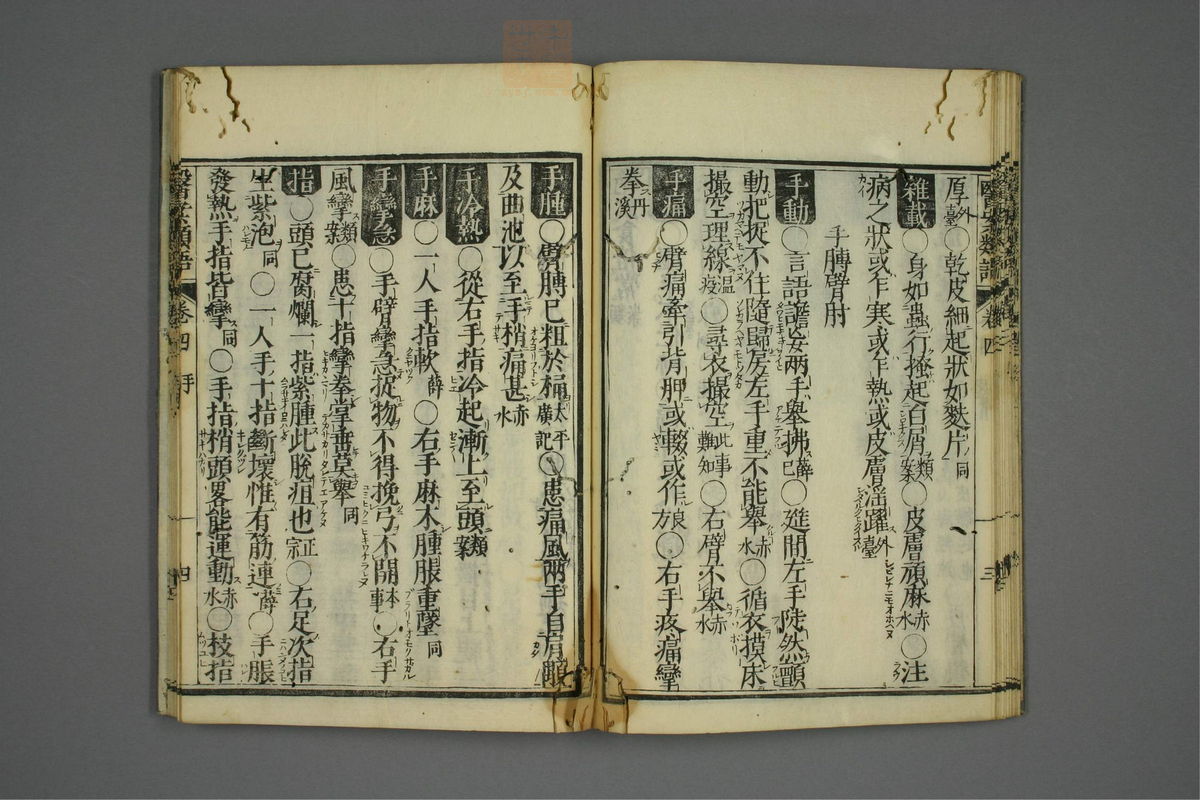 厚外臺○乾皮細起狀如麩片同
雜載○身如蟲行搔起白屑類案○皮膚頑麻赤水○注
病之狀或乍寒或乍熱或皮膚淫躍外臺
手膊臂肘
手動○言語譫妄兩手舉拂薛己○筵間左手陡然顫
動把捉不住隨歸房左手重不能舉赤水○循衣摸床
撮空理線溫疫○尋衣撮空此事難知○右臂不舉赤水
手痛○臂痛牽引背胛或輟或作良方○右手疼痛攣
拳丹溪
手腫○臂膊已粗於桶太平廣記○患痛風兩手自肩顒
及曲池以至手梢痛甚赤水
手冷熱○從右手指冷起漸上至頭類案
手麻○一人手指軟薛○右手麻木腫脹重墜同
手攣急○手臂攣急捉物不得挽弓不開本事○右手
風攣類案○患十指攣拳掌垂莫舉同
指○頭已腐爛一指紫腫此脫疽也正宗○右足次指
生紫泡同○一人手十指斷壞惟有筋連薛○手脹
發熱手指皆攣同○手指梢頭畧能運動赤水○枝指
卷四 手
四